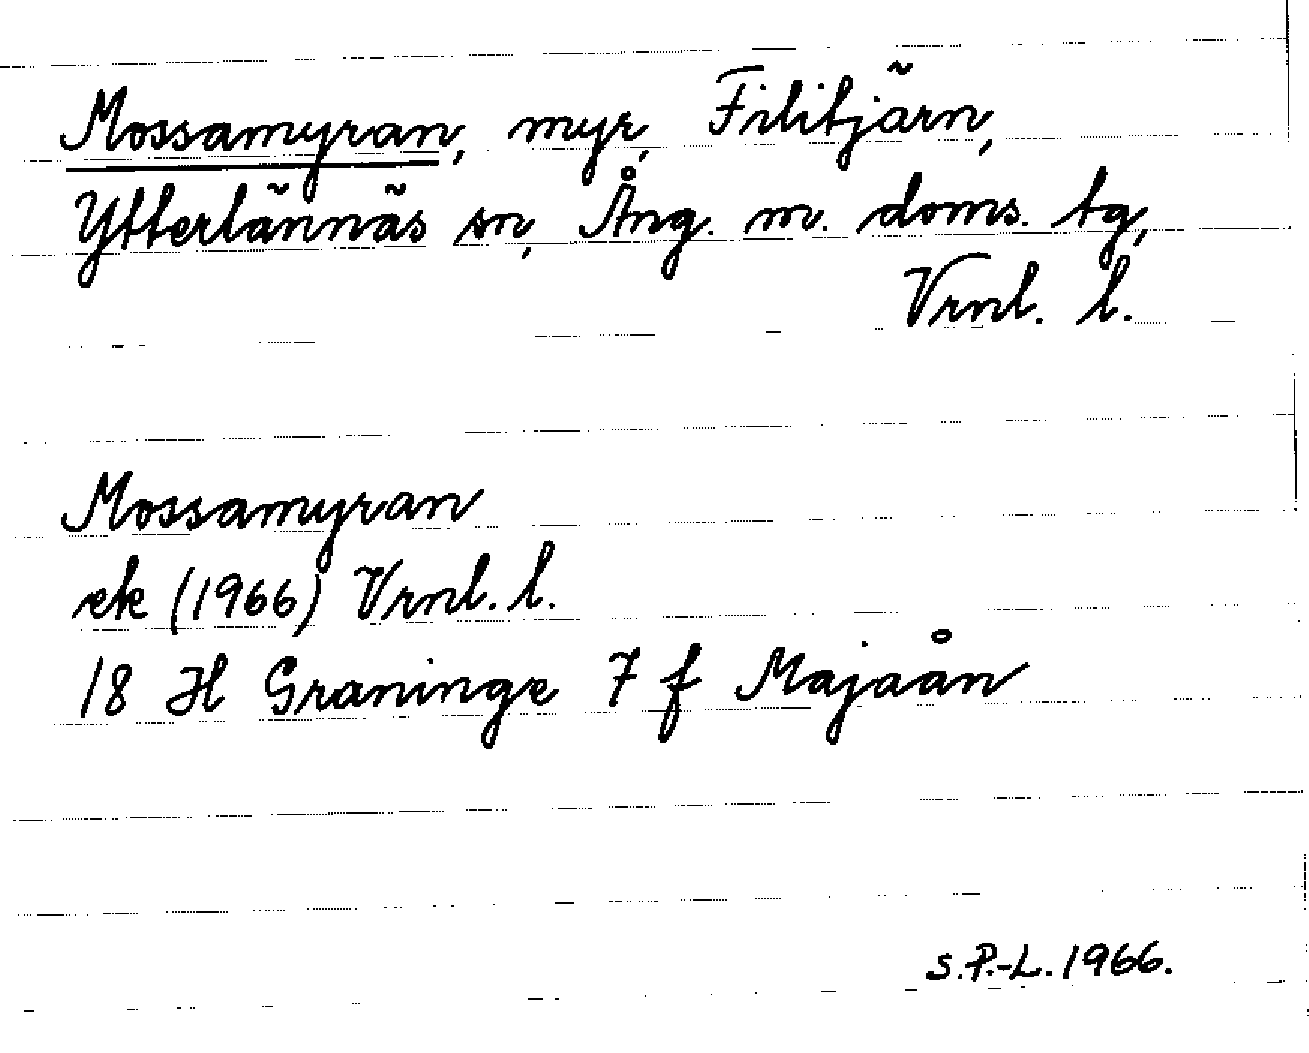 Mossamyran, myr, Filitjärn,
Ytterlännäs sn, Ång. m. doms. tg,
Vrnl. l.
Mossamyran
ek (1966) Vrnl. l.
18 H Graninge 7 f Majaån
S.P.-L. 1966.